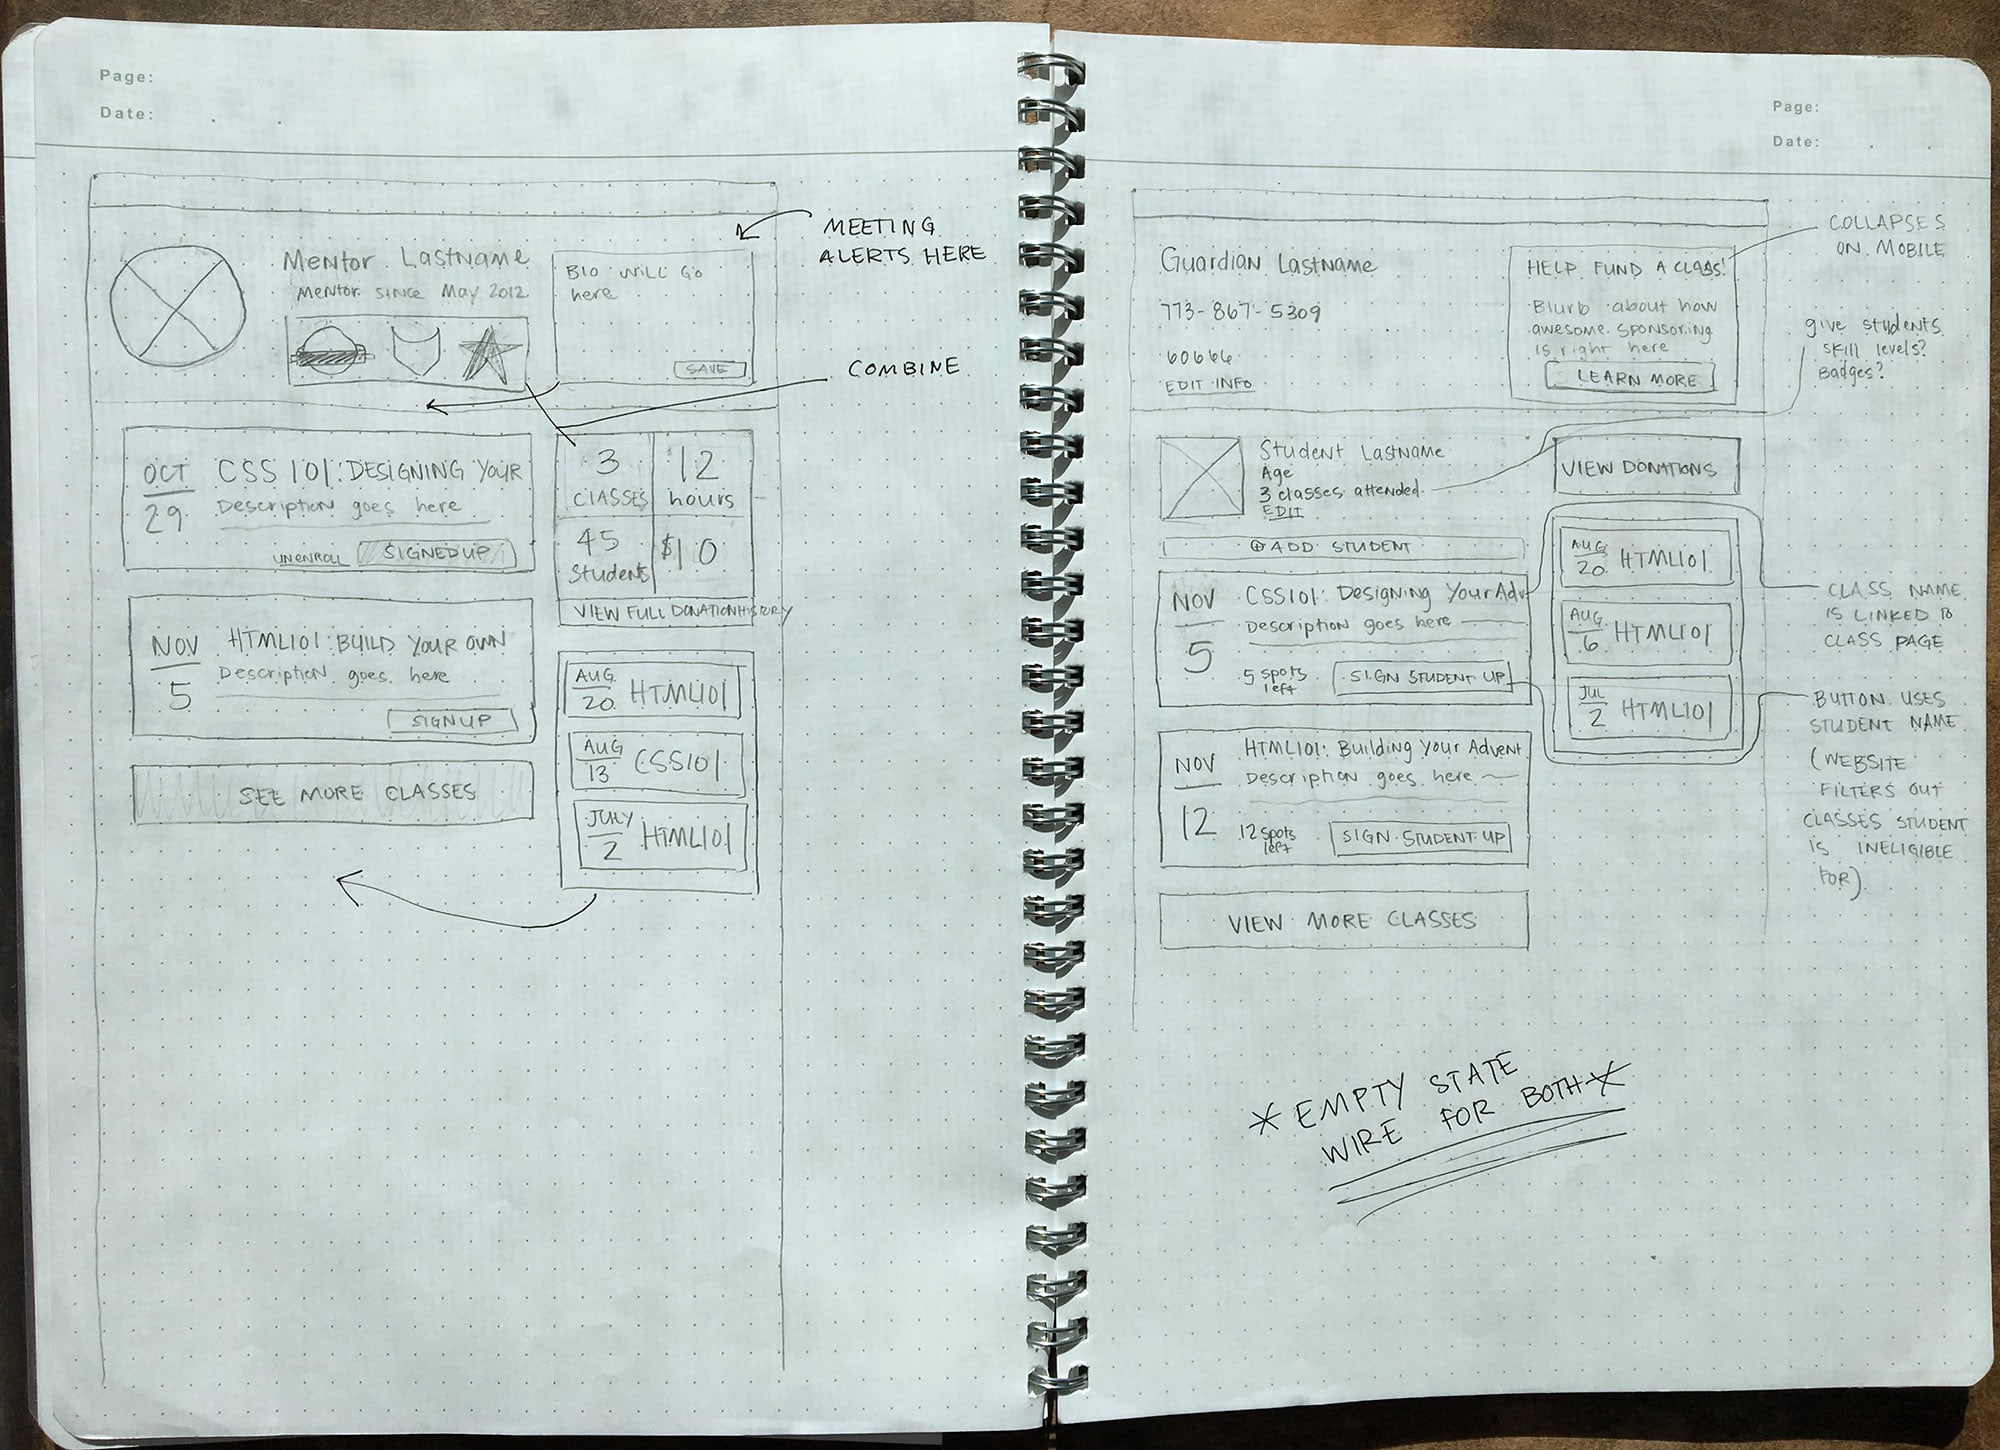 Page:
Date:
MEETING
ALERTS HERE
Mentor Lastname
Mentor since May 2012
Bio will go
here
SAVE
COMBINE
OCT
29
CSS 101: DESIGNING YOUR
Description goes here
UNENROLL
SIGNED UP
3
CLASSES
12
hours
45
Students
$10
VIEW FULL DONATION HISTORY
NOV
5
HTML101: BUILD YOUR OWN
Description goes here
SIGN UP
SEE MORE CLASSES
AUG
20
HTML101
AUG
13
CSS101
JULY
2
HTML101
Page:
Date:
COLLAPSES
ON MOBILE
Guardian Lastname
773-867-5309
60666
EDIT INFO
HELP FUND A CLASS!
Blurb about how
awesome sponsoring
is right here
LEARN MORE
give students
skill levels?
Badges?
Student Lastname
Age
3 classes attended
EDIT
VIEW DONATIONS
⊕ ADD STUDENT
NOV
5
CSS101: Designing Your Adv
Description goes here
5 spots
left
SIGN STUDENT UP
AUG
20
HTML101
AUG
6
HTML101
JUL
2
HTML101
CLASS NAME
IS LINKED TO
CLASS PAGE
BUTTON USES
STUDENT NAME
(WEBSITE
FILTERS OUT
CLASSES STUDENT
IS INELIGIBLE
FOR)
NOV
12
HTML101: Building Your Advent
Description goes here
12 spots
left
SIGN STUDENT UP
VIEW MORE CLASSES
* EMPTY STATE
WIRE FOR BOTH *